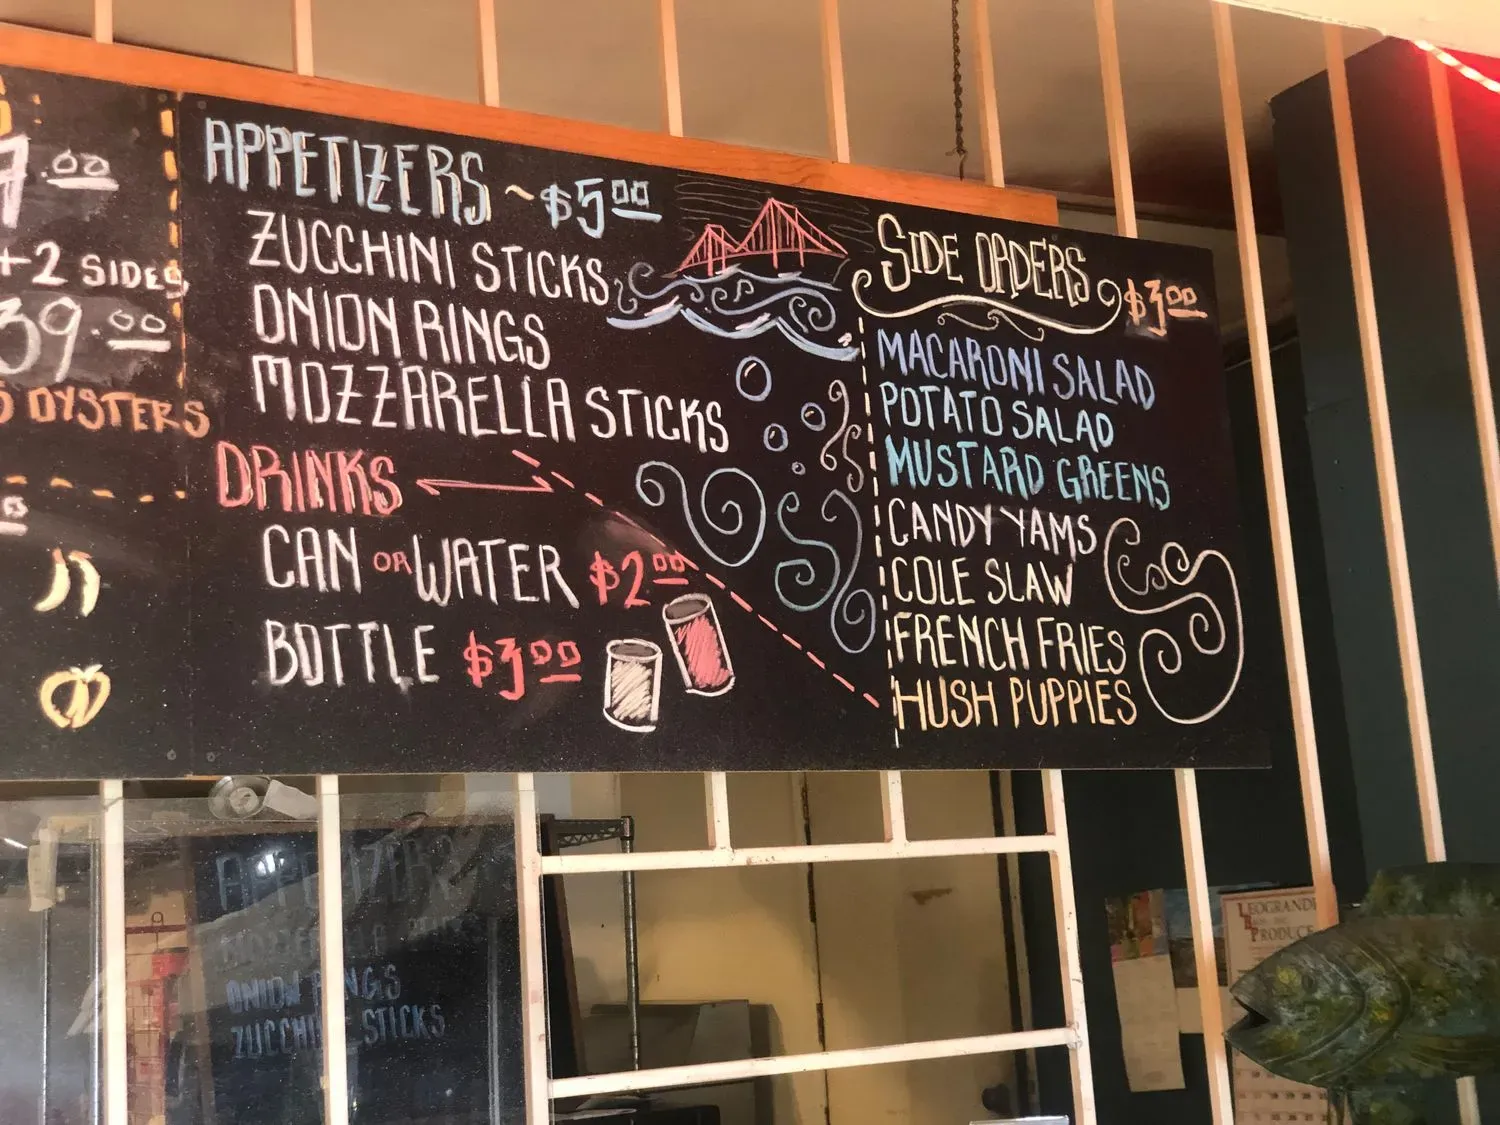 .00
+2 SIDES
39.00
OYSTERS
APPETIZERS ~ $5.00
ZUCCHINI STICKS
ONION RINGS
MOZZARELLA STICKS
DRINKS
CAN OR WATER $2.00
BOTTLE $3.00
SIDE ORDERS $3.00
MACARONI SALAD
POTATO SALAD
MUSTARD GREENS
CANDY YAMS
COLE SLAW
FRENCH FRIES
HUSH PUPPIES
ONION RINGS
ZUCCHINI STICKS
LEOGRANDE
PRODUCE